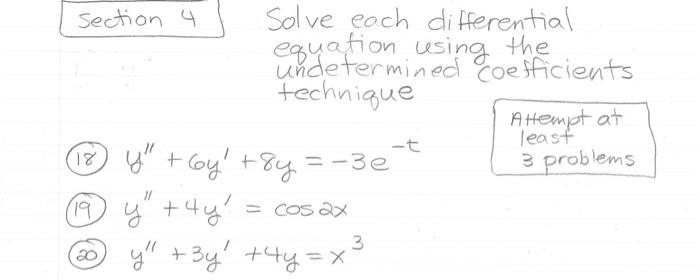 Section 4
Solve each differential
equation using the
undetermined coefficients
technique
Attempt at
least
3 problems
(18) y'' + 6y' + 8y = -3e^-t
(19) y'' + 4y' = cos2x
(20) y'' + 3y' + 4y = x^3